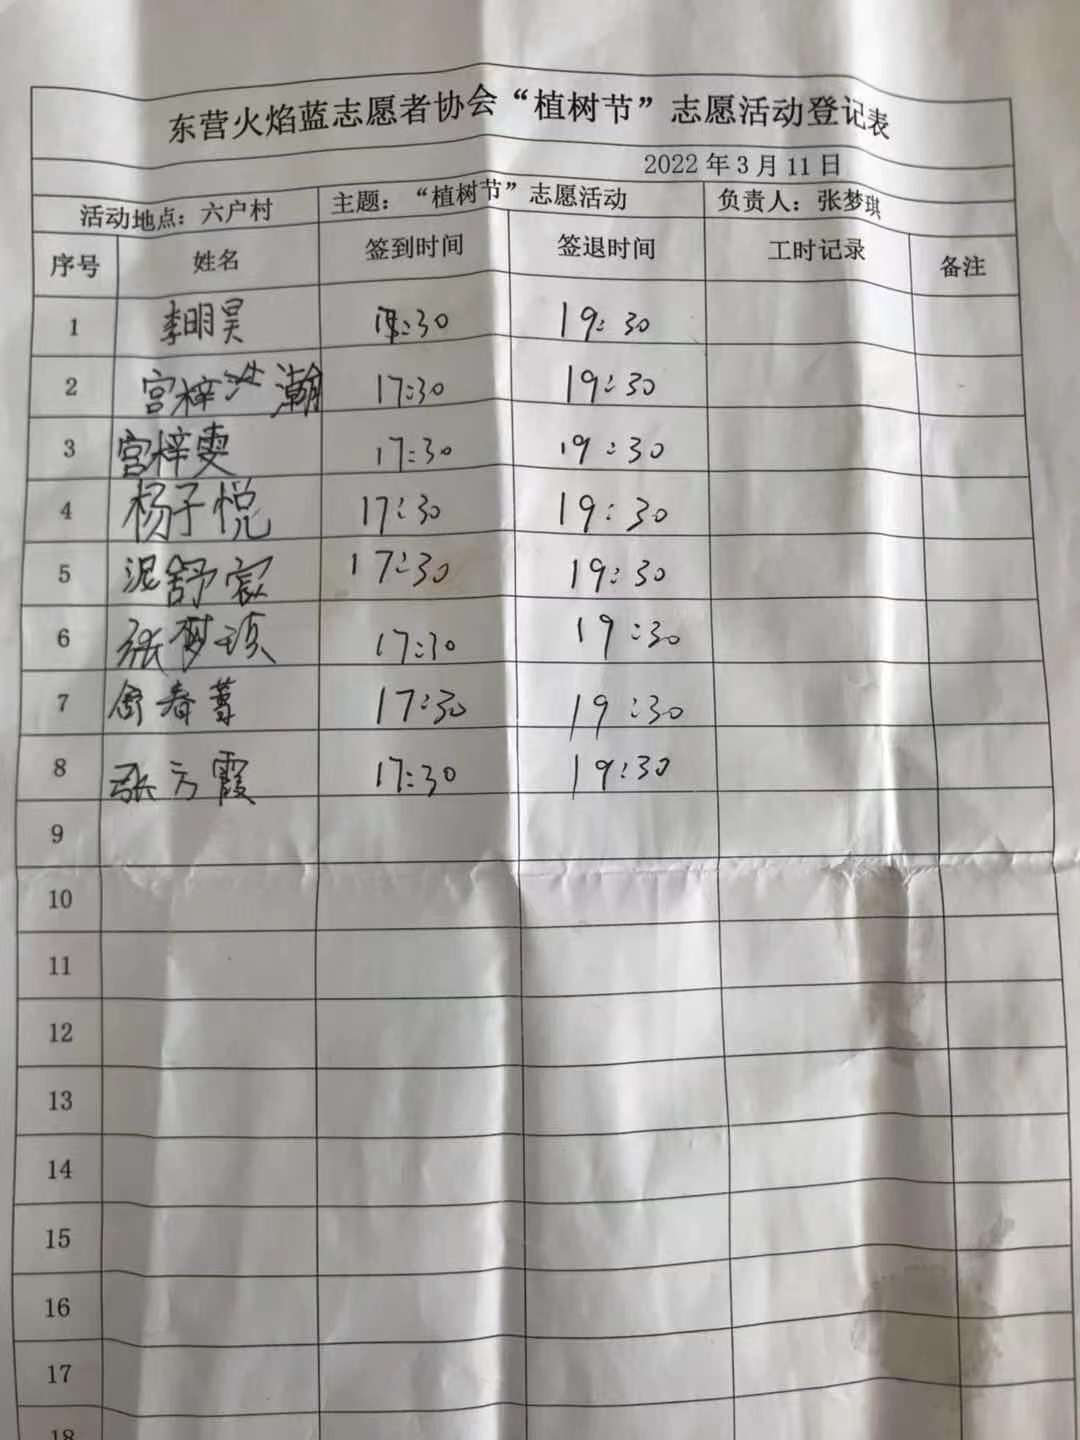 东营火焰蓝志愿者协会“植树节”志愿活动登记表
2022年3月11日
活动地点：六户村 主题：“植树节”志愿活动 负责人：张梦琪
序号 姓名 签到时间 签退时间 工时记录 备注
1 李明昊 :30 19:30
2 宫梓 瀚 17:30 19:30
3 宫梓雯 17:30 19:30
4 杨子悦 17:30 19:30
5 泥舒宸 17:30 19:30
6 张梦琪 17:30 19:30
7 舒春 17:30 19:30
8 张方霞 17:30 19:30
9
10
11
12
13
14
15
16
17
18